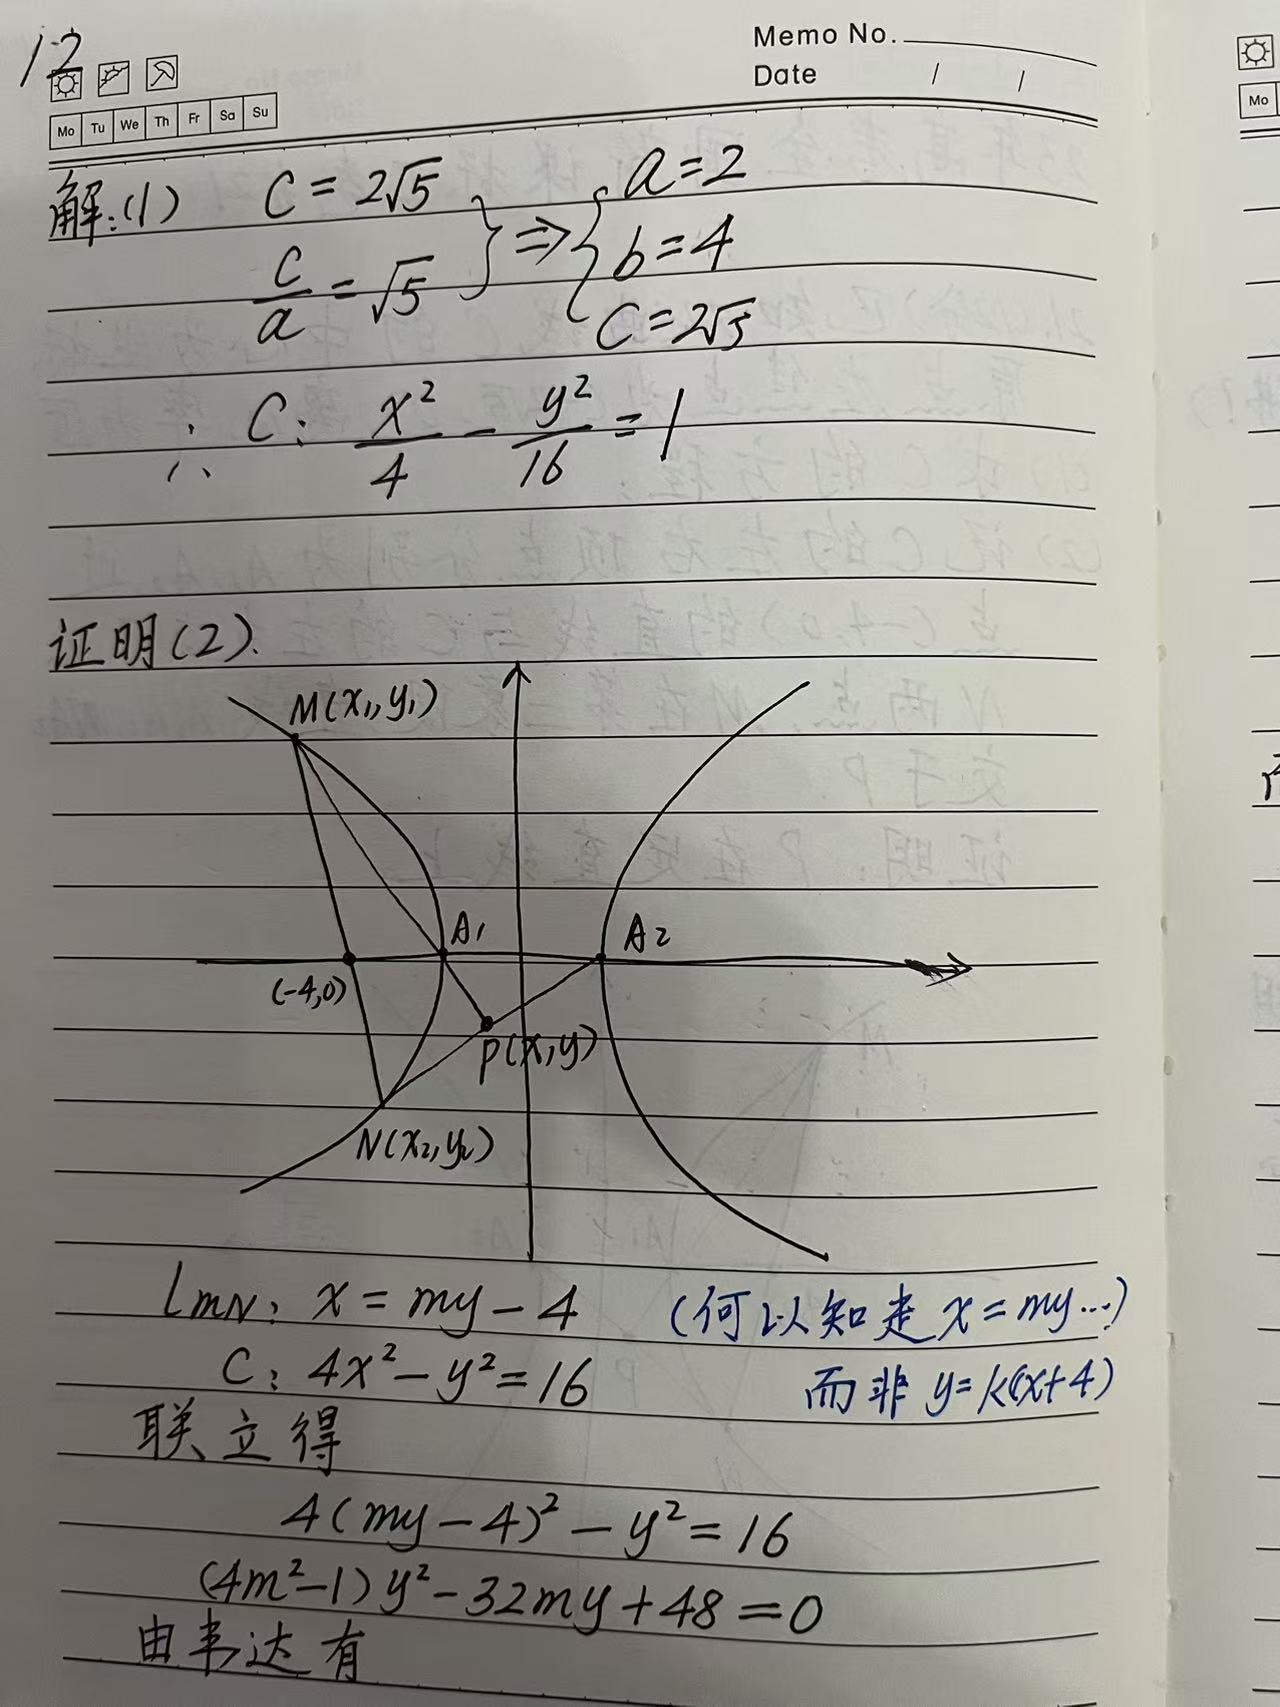 12
Memo No.
Date / /
Mo Tu We Th Fr Sa Su
Mo
解:(1) C = 2√5
c/a = √5
} ⇒ { a = 2
b = 4
C = 2√5
∴ C: x²/4 - y²/16 = 1
证明(2).
M(x₁,y₁)
A₁ A₂
(-4,0)
P(x,y)
N(x₂,y₂)
lMN: x = my - 4 (何以知走 x = my…)
C: 4x² - y² = 16 而非 y = k(x+4)
联立得
4(my-4)² - y² = 16
(4m²-1)y² - 32my + 48 = 0
由韦达有